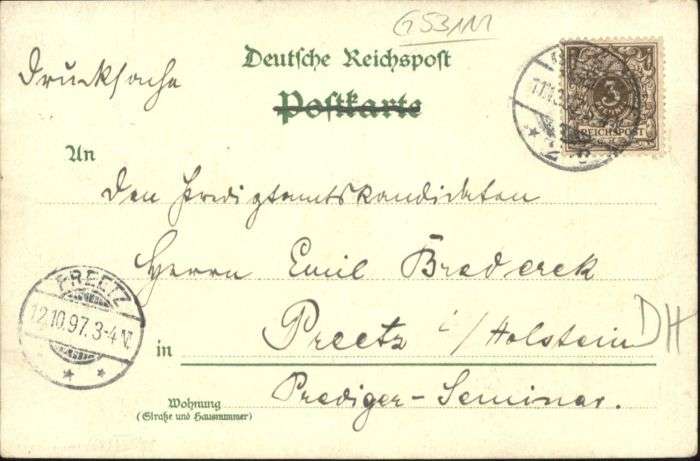 G53/11
Deutsche Reichspost
Postkarte
Drucksache
3
REICHSPOST
An
Den Predigtamtskandidaten
Herrn Emil Brederek
PREETZ
12.10.97.3-4N.
in Preetz i/Holstein
DH
Prediger-Seminar.
Wohnung
(Straße und Hausnummer)